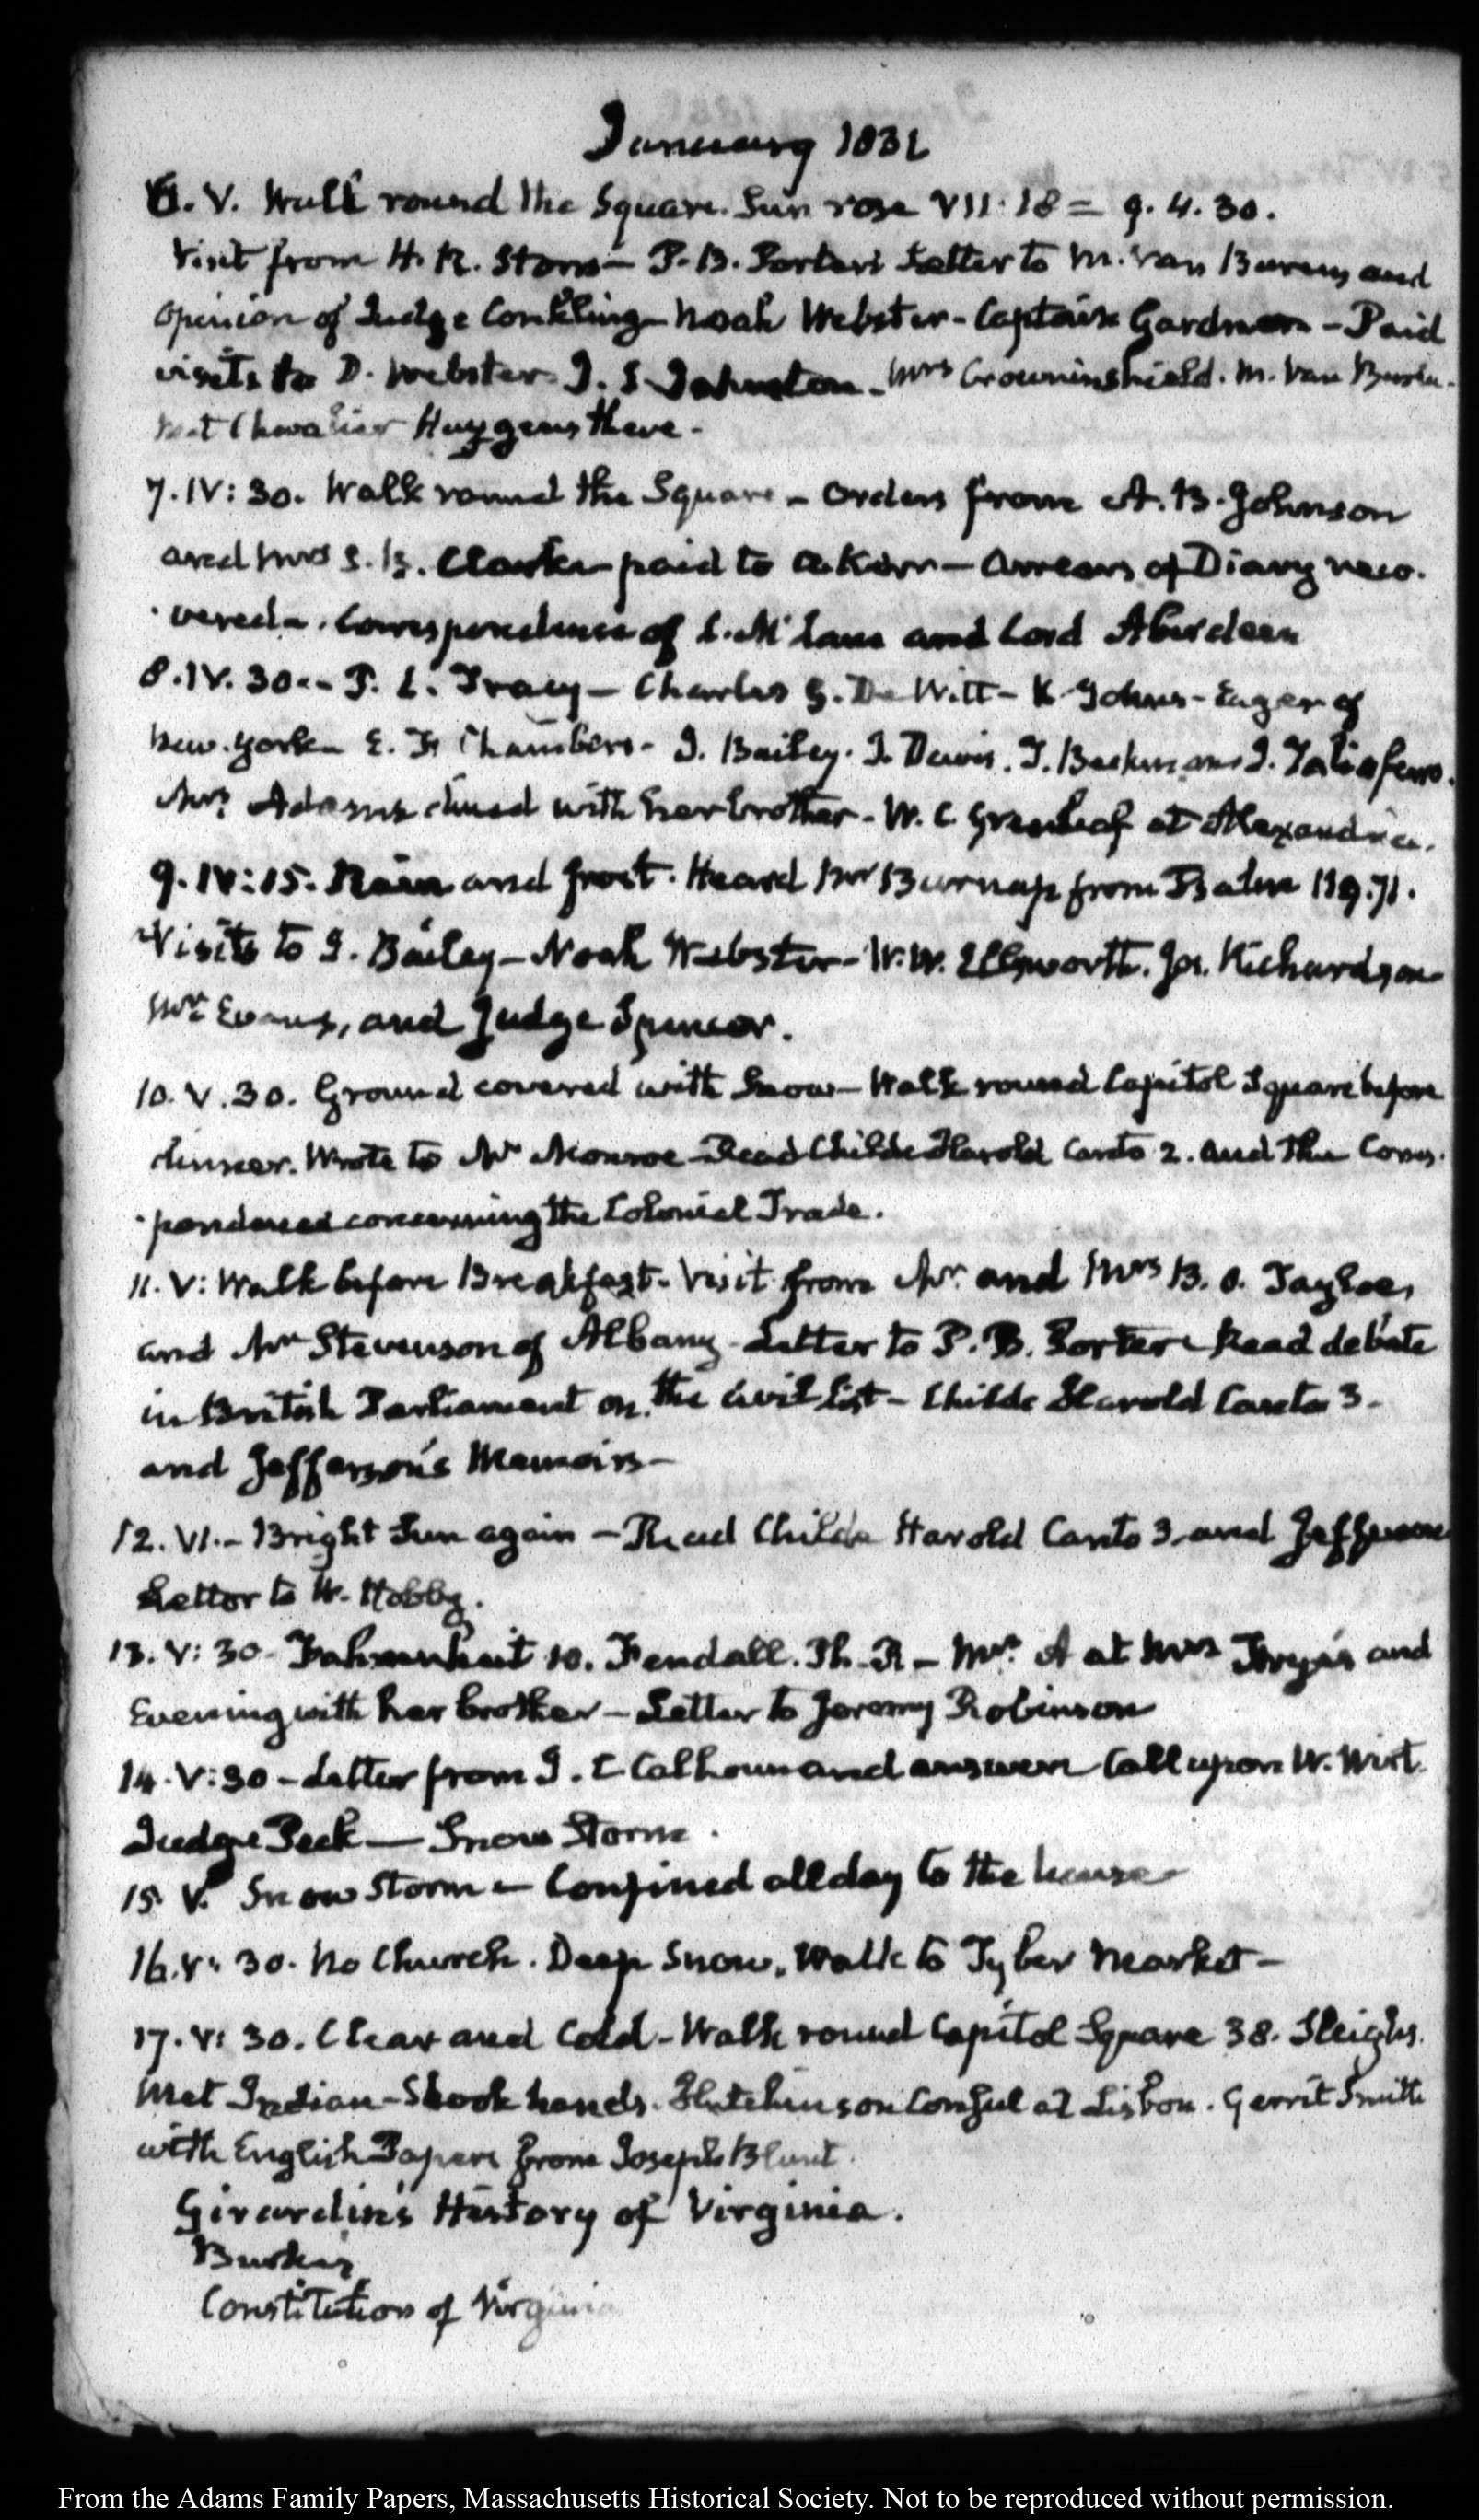 January 1831
6. V. Walk round the Square. Sun rose VII. 18 = 9. 4. 30.
Visit from H. R. Storrs — P. B. Porter's Letter to M. Van Buren, and
opinion of Judge Conkling — Noah Webster — Captain Gardner — Paid
visits to D. Webster. J. S Johnston — Mrs Crowninshield. M. Van Buren.
met Chevalier Huygens there —
7. IV: 30. Walk round the Square — Orders from A. B. Johnson
and Mrs S. B. Clarke paid to — Arrears of Diary reco-
vered — Correspondence of L. McLane and Lord Aberdeen
8. IV. 30 — P. L. Tracy — Charles G. De Witt — K Johns — Eager of
New-York — E. F. Chambers — J. Bailey. J. Davis. T. Beekman J. Taliaferro.
Mrs Adams dined with her brother — W. C Greenleaf at Alexandria.
9. IV: 15. Rain and frost. Heard Mr Burnap from Psalm 119. 71.
Visits to J. Bailey — Noah Webster — W. W. Ellsworth. Jos. Richardson
Mr Evans, and Judge Spencer.
10. V. 30. Ground covered with Snow — Walk round Capitol Square before
dinner. Wrote to Mr Monroe — Read Childe Harold Canto 2. and the Corres-
-pondence concerning the Colonial Trade.
11. V: Walk before Breakfast — Visit from Mr and Mrs B. O. Tayloe,
and Mr Stevenson of Albany — Letter to P. B. Porter — Read debate
in British Parliament on the Civil list — Childe Harold Canto 3 —
and Jefferson's Memoirs —
12. VI. — Bright Sun again — Read Childe Harold Canto 3 and Jefferson
Letter to W. Hobby.
13. V: 30 — Fahrenheit 10. Fendall. Ph. R — Mrs A at Mrs Frye's and
Evening with her brother — Letter to Jeremy Robinson
14. V: 30 — Letter from J. C Calhoun and answer — Call upon W. Wirt
Judge Peck — Snow Storm.
15. V. Snow Storm — Confined all day to the house
16. V: 30. No Church. Deep Snow, Walk to Tyber Market —
17. V: 30. Clear and Cold — Walk round Capitol Square 38. Sleighs.
Met Indian — Shook hands. Hutchinson Consul at Lisbon. Gerrit Smith
with English Papers from Joseph Blunt.
Girardin's History of Virginia.
Burke's
Constitution of Virginia
From the Adams Family Papers, Massachusetts Historical Society. Not to be reproduced without permission.